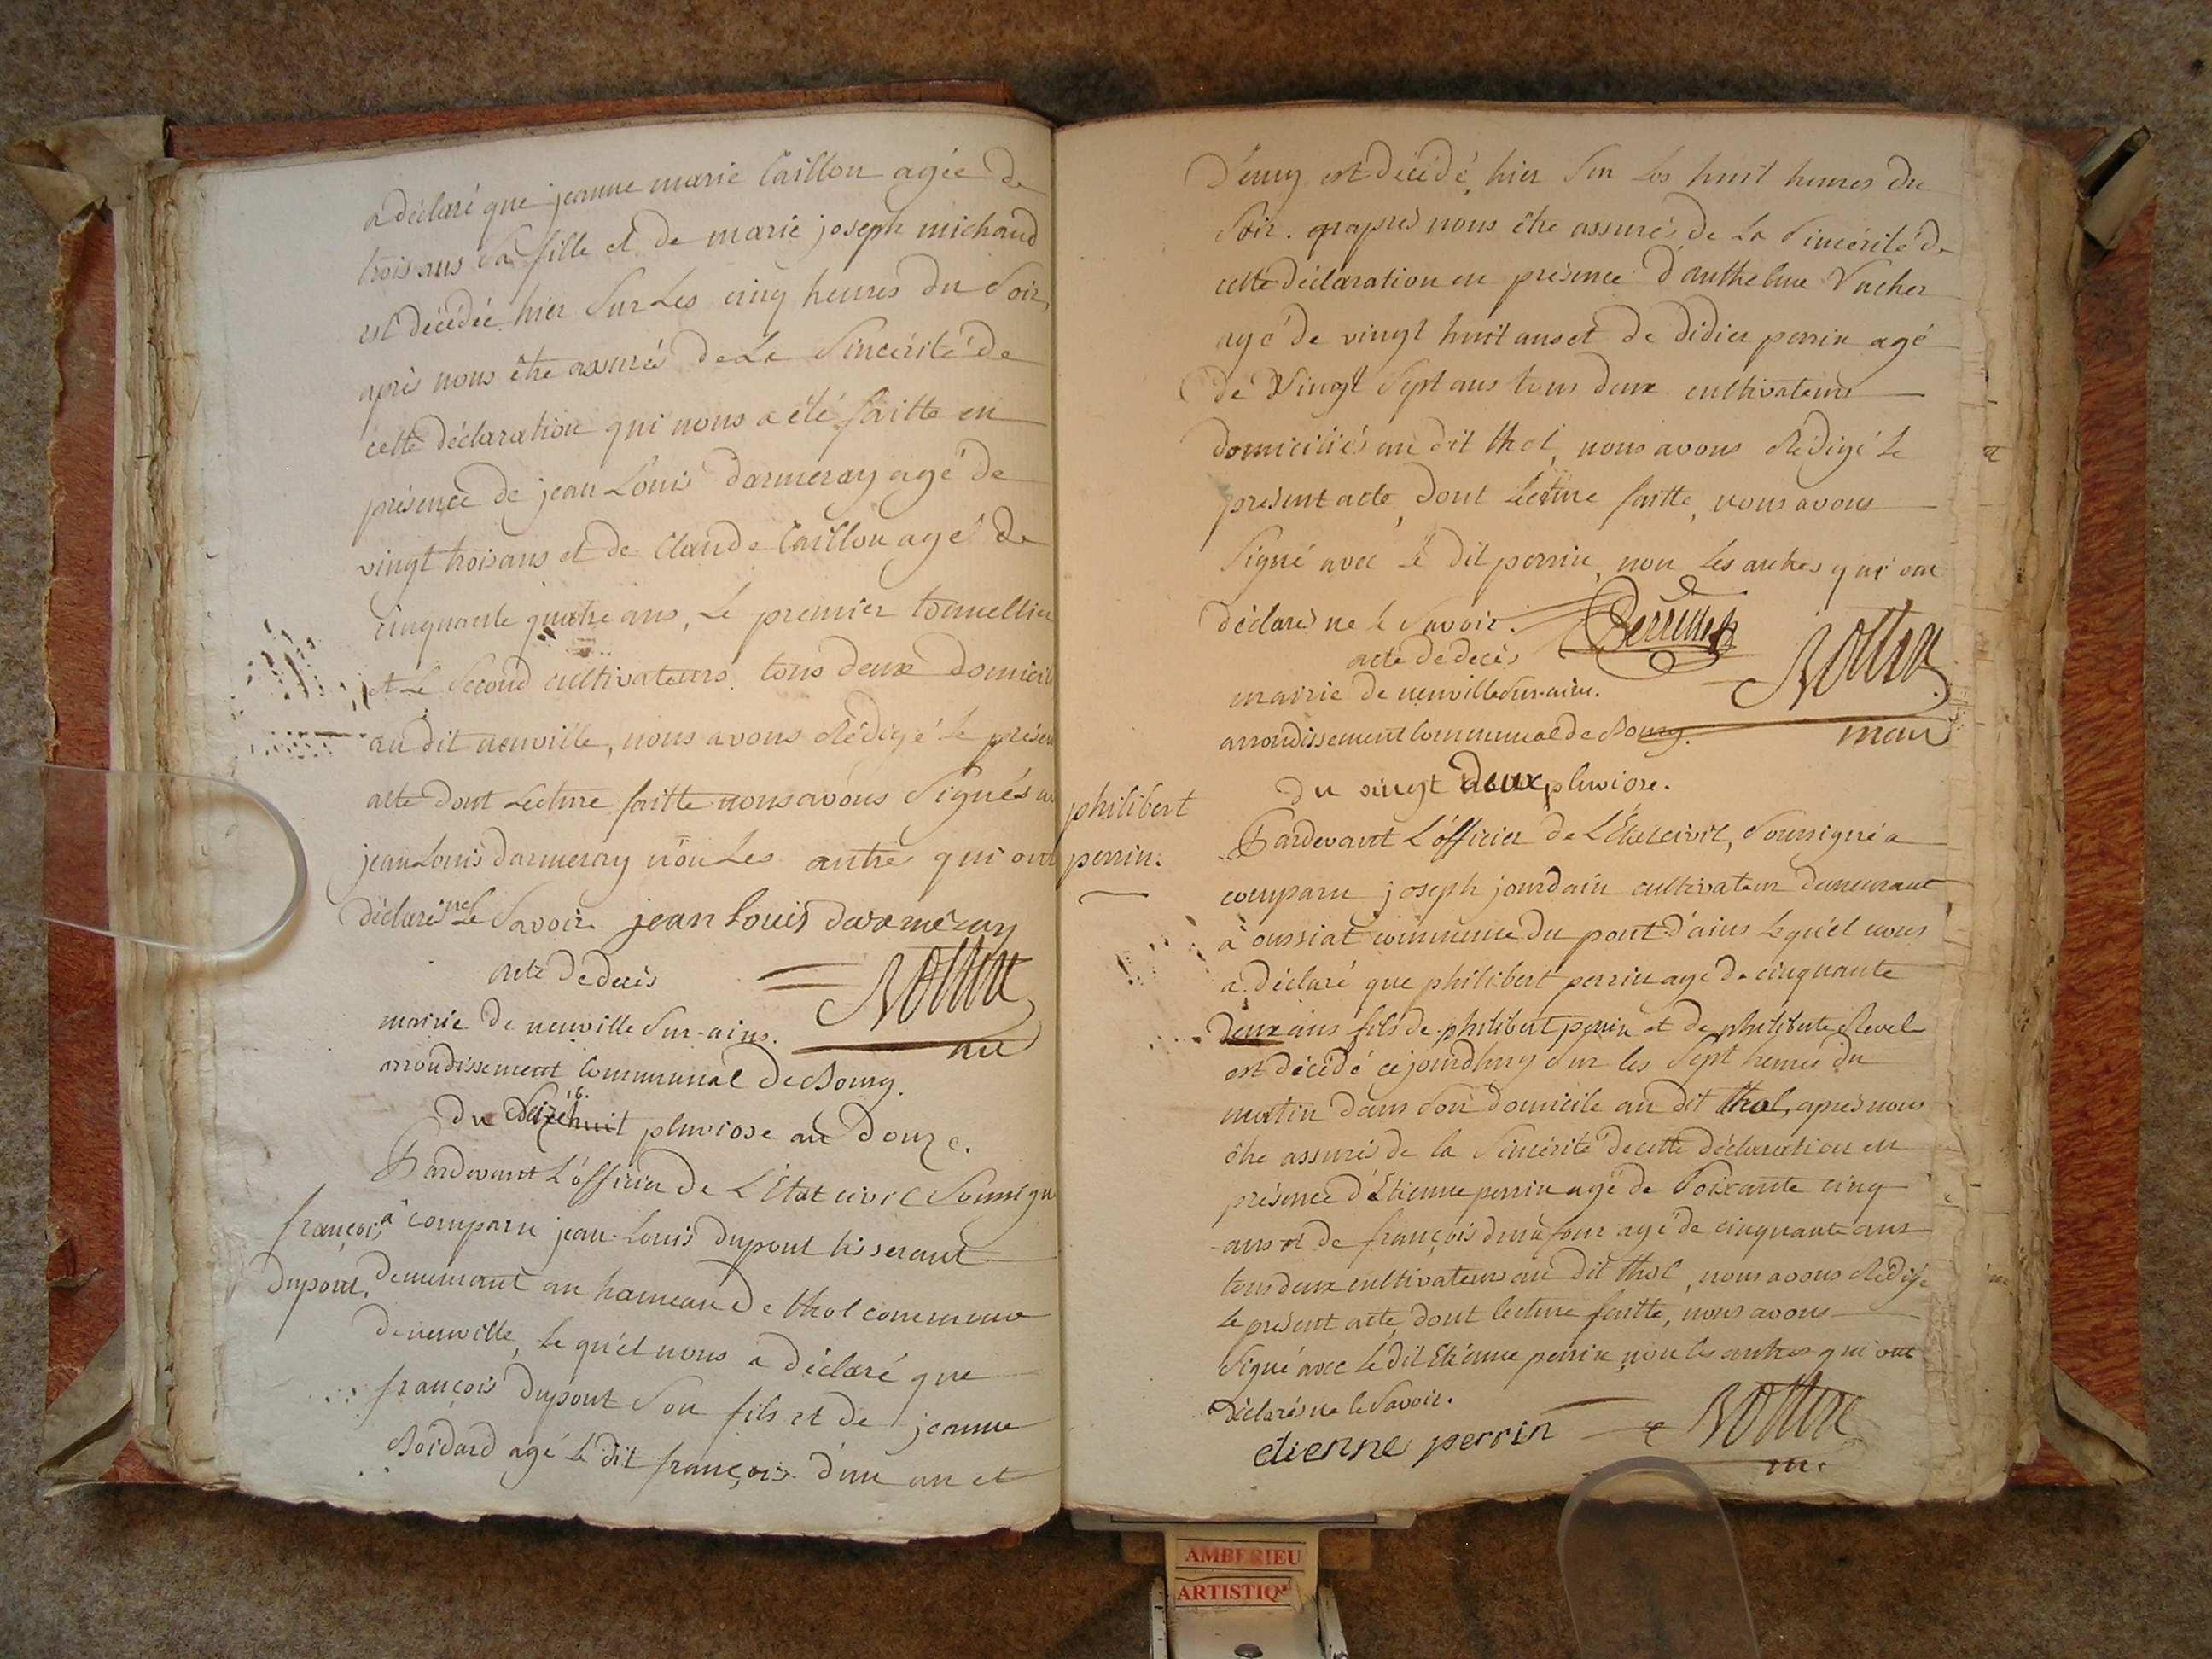 a déclaré que jeanne marie Caillon agée de
trois ans sa fille et de marie joseph michaud
est décédée hier sur Les cinq heures du soir,
après nous être assurés de La sincérité de
cette déclaration qui nous a été faitte en
présence de jean Louis darmeray agé de
vingt trois ans et de Claude Caillon agé de
cinquante quatre ans, Le premier tonnellier
et Le second cultivateurs tous deux domicil
au dit neuville, nous avons Rédigé le présen
acte dont Lecture faitte nous avons signés av
jean Louis darmeray non Les autres qui ont
déclaré ne Le savoir. jean louis darmeray
acte de decès
mairie de neuville sur-ains.
arrondissement Communal de Bourg.
16.
du pluviose an douze.
Pardevant L'officier de L'Etat civil soussigné
françois a comparu jean-Louis dupont tisserant
dupont. demeurant au hameau de thol commune
de neuville, le quél nous a déclaré que
françois dupont son fils et de jeanne
Boidard agé le dit françois d'un an et
Demy est décédé, hier sur Les huit heures du
soir. après nous être assurés de La sincérité de
cette déclaration en présence d'anthelme Vacher
agé de vingt huit ans et de didier perrin agé
de Vingt sept ans tous deux cultivateurs
domiciliés au dit thol, nous avons Rédigé Le
présent acte, dont Lecture faitte, nous avons
signé avec Le dit perrin, non Les autres qui ont
déclarés ne Le savoir. Perrin
acte de decès
mairie de neuville sur-ains.
arrondissement Communal de Bourg.
du vingt deux pluviose.
philibert
perrin.
Pardevant L'officier de L'Etat civil, soussigné a
comparu joseph jourdain cultivateur demeurant
à oussiat commune du pont-d'ains le quél nous
a déclaré que philibert perrin agé de cinquante
deux ans fils de philibert perrin et de philiberte Revel
est décédé ce jourdhuy sur les sept heures du
matin dans son domicile au dit thol, après nous
être assurés de la sincérité de cette déclaration en
présence d'Etienne perrin agé de soixante cinq
ans et de françois dufour agé de cinquante ans
tous deux cultivateurs au dit thol, nous avons Rédigé
Le présent acte, dont lecture faitte, nous avons
signé avec le dit Etienne perrin, non les autres qui ont
déclarés ne le savoir.
etienne perrin
AMBERIEU
ARTISTIQUE